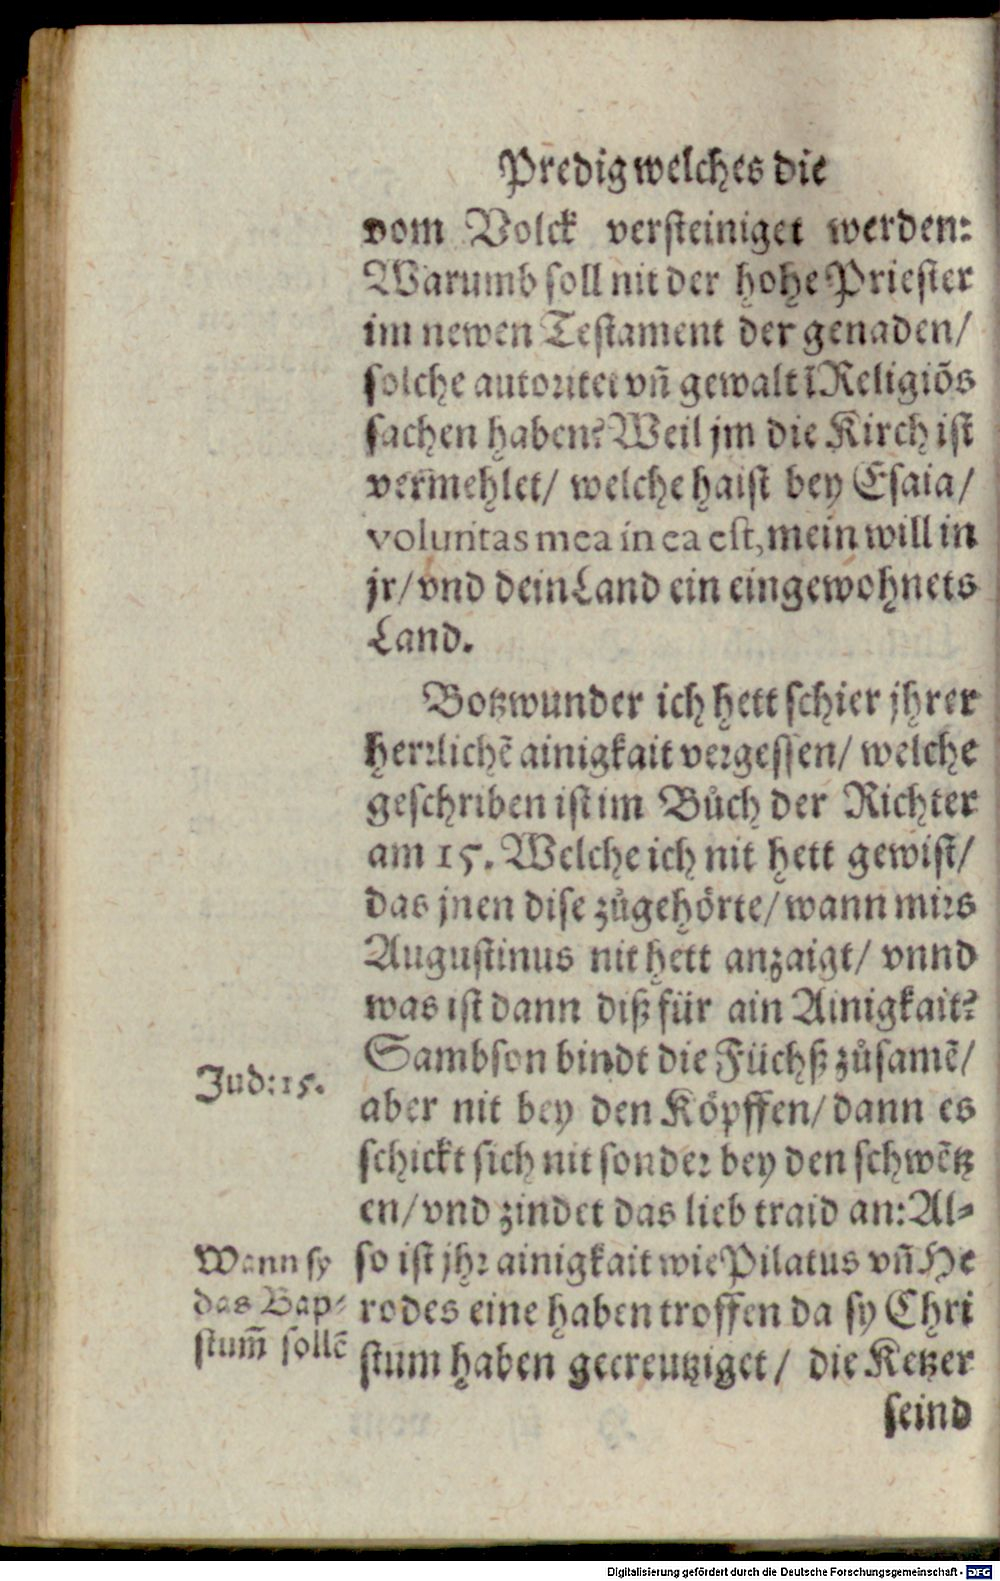 Predig welches die
vom Volck versteiniget werden:
Warumb soll nit der hohe Priester
im newen Testament der genaden/
solche autoritet vñ gewalt ĩ Religiõs
sachen haben? Weil jm die Kirch ist
vermehlet/ welche haist bey Esaia/
voluntas mea in ea est, mein will in
jr/ vnd dein Land ein eingewohnets
Land.
Botzwunder ich hett schier jhrer
herrlichẽ ainigkait vergessen/ welche
geschriben ist im Bůch der Richter
am 15. Welche ich nit hett gewist/
das jnen dise zůgehörte/ wann mirs
Augustinus nit hett anzaigt/ vnnd
was ist dann diß für ain Ainigkait?
Sambson bindt die Füchß zůsamẽ/
Jud: 15.
aber nit bey den Köpffen/ dann es
schickt sich nit sonder bey den schwẽtz
en/ vnd zindet das lieb traid an: Al-
so ist jhr ainigkait wie Pilatus vñ He
rodes eine haben troffen da sy Chri
stum haben gecreutziget/ die Ketzer
Wann sy
das Bap-
stum̃ sollẽ
seind
Digitalisierung gefördert durch die Deutsche Forschungsgemeinschaft - DFG